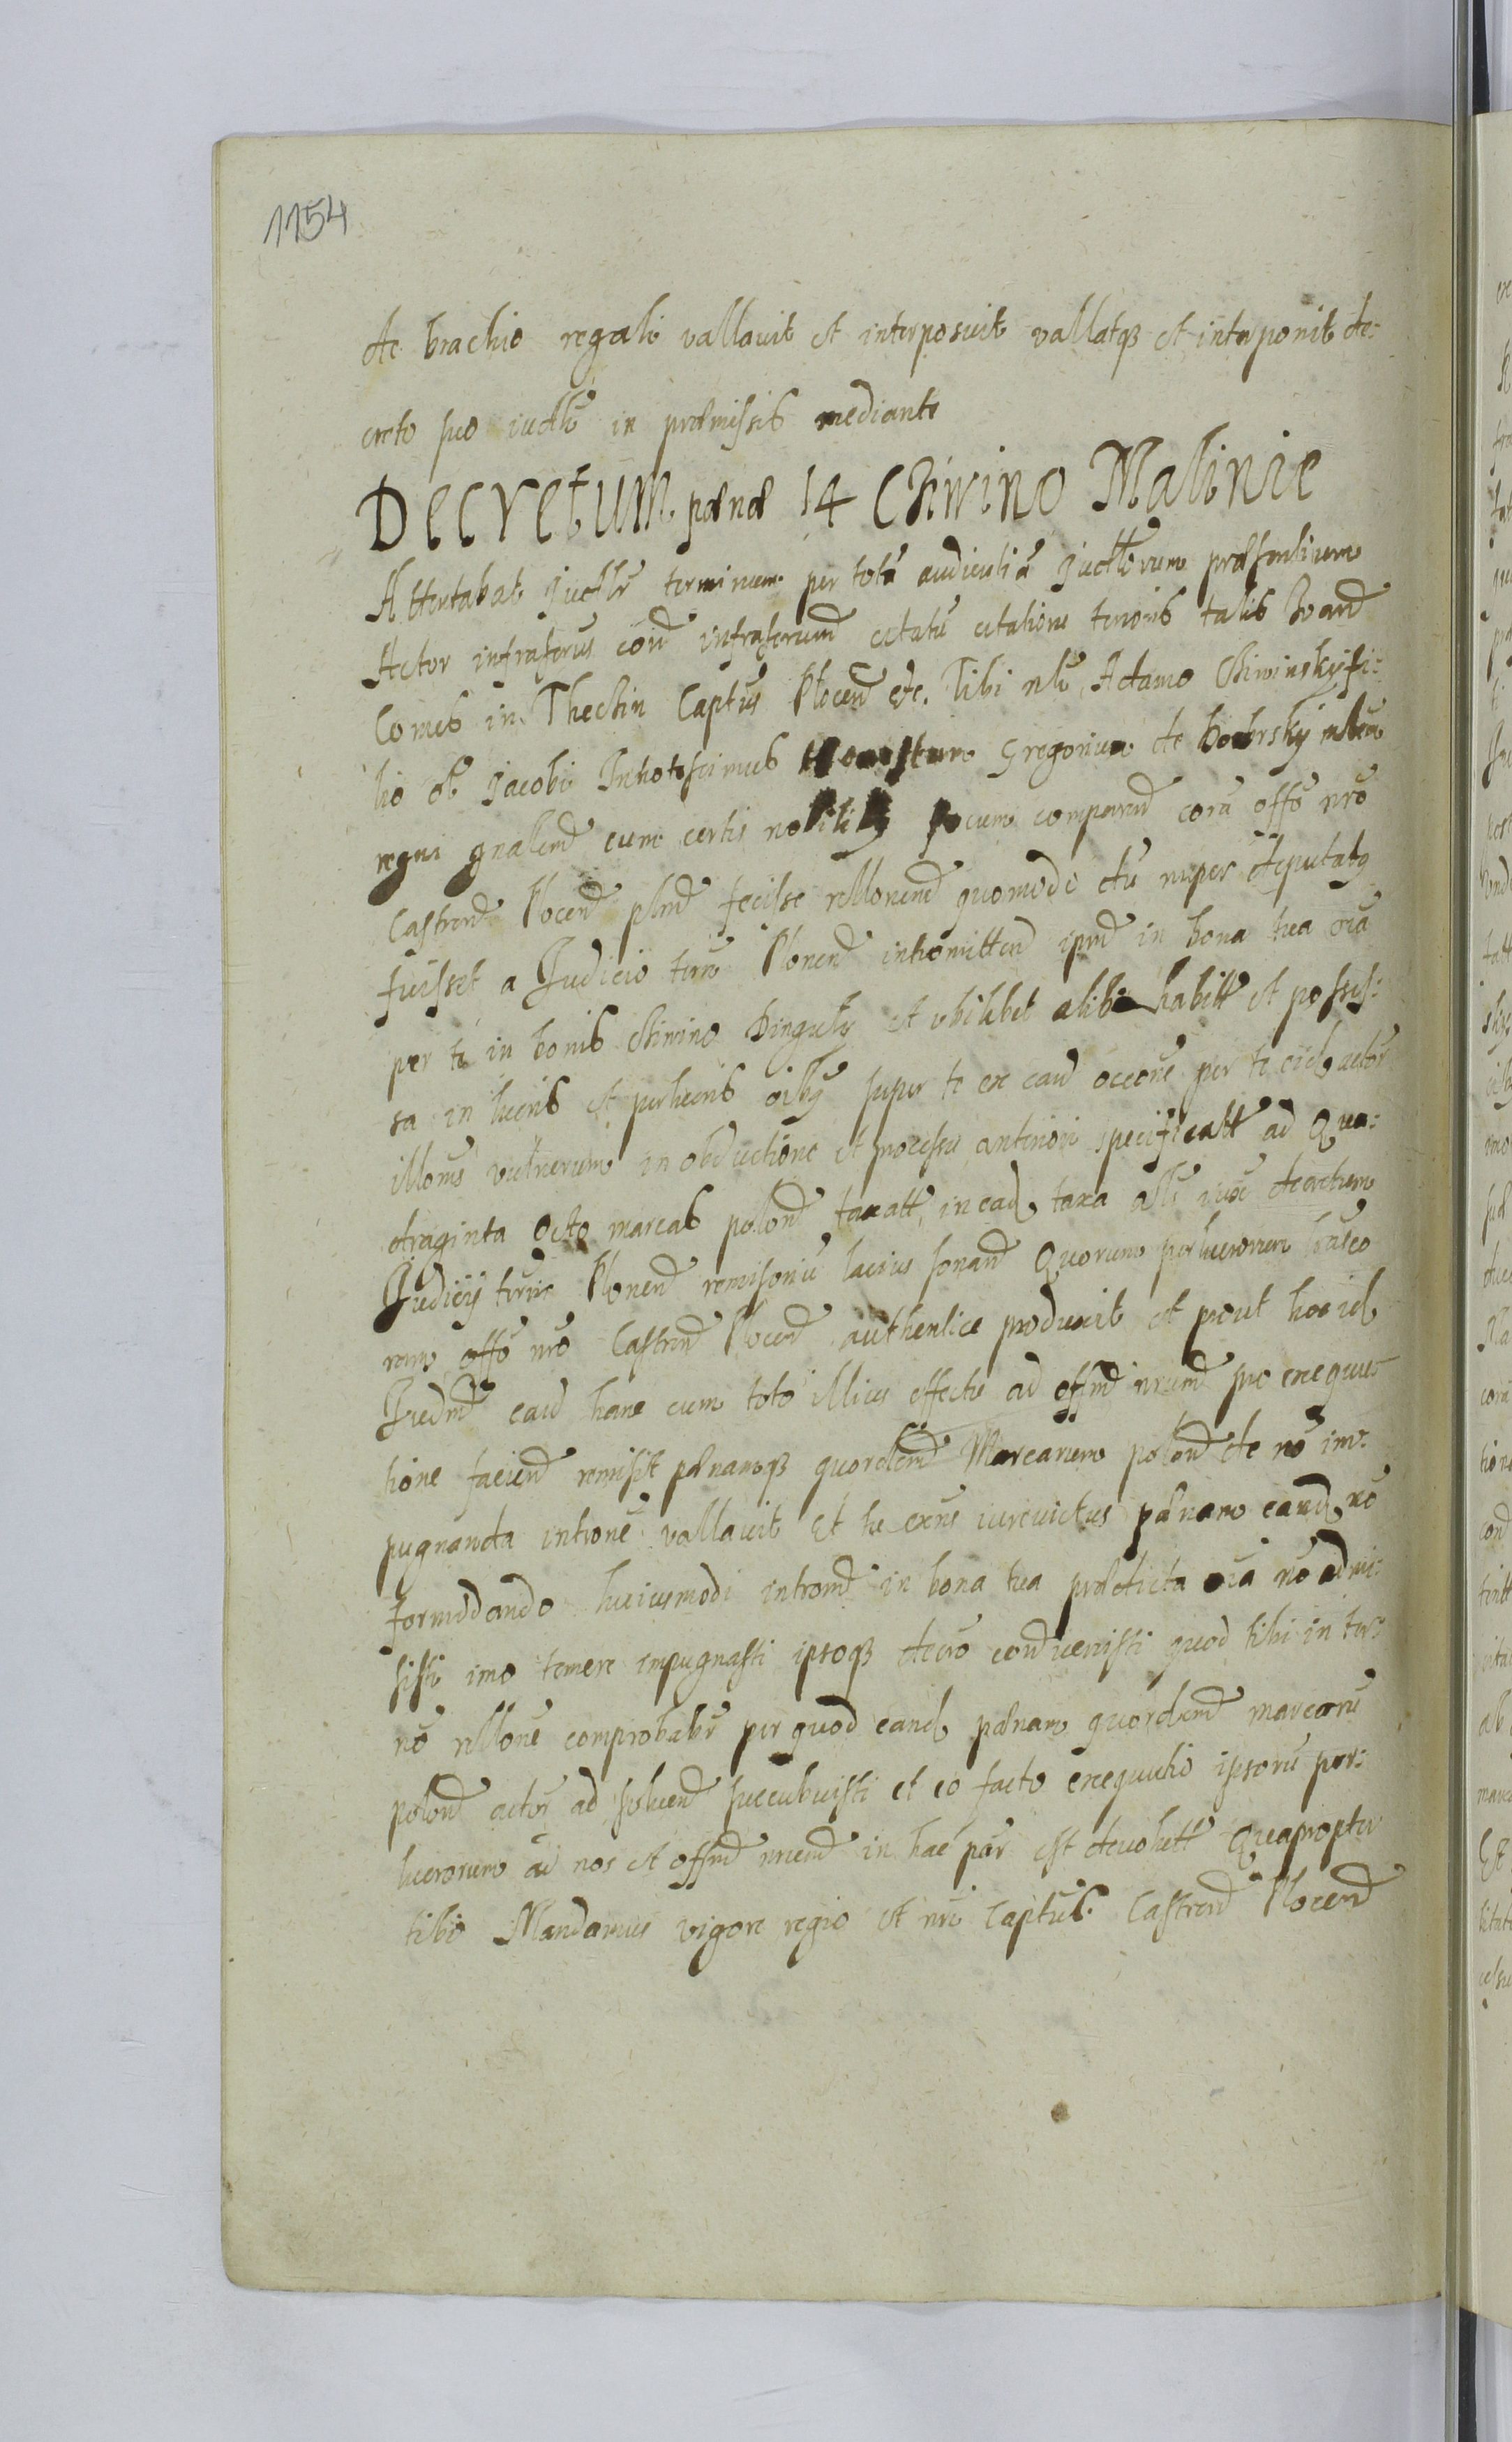 1154
de brachio regali vallavit et interposuit vallatqz et interponit de:
creto suo iudlr in præmissis mediante
Decretum pænæ 14 Chiwino Maliniæ
Attentabat Judlr terminum per totã audientiã Judlrum præsentium
Actor infrascrus coñ infrascrum citatũ citatione tenoris talis Joand
Comes in Thechin Captus Plocend etc. Tibi nli Adamo Chiwinsky fi:
lio ol Jacobi Innotescimus Gregorium de Bobrsky
regni gnalemd cum certis nobilibq secum comparend corã offo nro
Castrend Plocend plmd fecisse rellonemd quomodo dũ nuper deputatq
fuisset a Judicio terrẽ Plonend intromittend ipmd in bona tua oia
per te in bonis Chiwino Dinguly et ubilibet alibi habitt et posses:
sa in lucris et perlucris oibq super te ex caud occone per te eid actor
illorũ vulnerum in obductione et processu anteriori specificatt ad Qua:
draginta Octo marcas polond taxatt, in ead taxa als iux decretum
Judicij terrẽ Plonend remissoriũ lacius sonand Quorum perlucrorum
rem offo nro Castrend Plocend authentice produxit et prout hoc id
Judmd caud hanc cum toto illius effectu ad offmd nrumd pro exequu:
tione faciend remisit pænamqz quordcemd Marcarum polond de nõ im:
pugnanda intronẽ vallavit Et tu exnẽ iurevictus pænam eand nõ
formidando huiusmodi intromd in bona tua prædicta oia nõ admi:
sisti imo temere impugnasti ipsoqz decro convenisti quod tibi in ter:
no rellone comprobabr per quod eand pænam quordcemd marcarũ
polond actori ad solvend succubuisti et eo facto exequutio ipsorũ per:
lucrorum ad nos et offmd nrumd in hac par est devolutt Quapropter
tibi Mandamus vigore regio et nri Captus Castrend Plocend